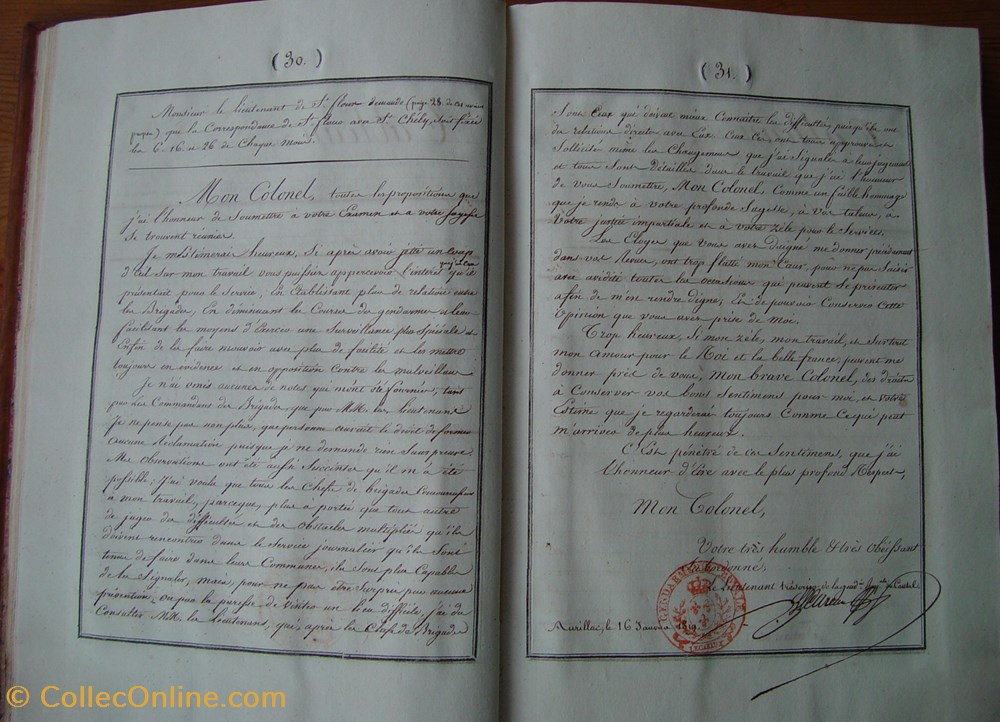 (30.)
Monsieur le Lieutenant de St. flour demande (page 28 de ce
que la Correspondance de St. flour avec St. Chély, soit fixée
les 6. 16. et 26 de Chaque mois.
Mon Colonel, toutes les propositions que
j'ai l'honneur de Soumettre à votre Examen et à votre Sagesse
Se trouvent réunies.
Je m'estimerais heureux, Si après avoir jetté un Coup
d'œil Sur mon travail vous pussiez appercevoir l'interêt qu'il
présentait pour le Service, En établissant plus de relations entre
les Brigades, En diminuant les Courses du gendarme et leur
facilitant les moyens d'Exercer une Surveillance plus Spéciale et
Enfin de les faire mouvoir avec plus de facilité et les mettre
toujours en évidence et en opposition Contre les malveillans.
Je n'ai omis aucunes des notes qui m'ont été fournies, tant
par les Commandans des Brigades, que par MM. les Lieutenans
Je ne pense pas non plus, que personne aurait le droit de former
aucune Réclamation puisque je ne demande rien Sans preuve
Mes observations ont été aussi Succintes qu'il m'a été
possible; J'ai voulu que tous les Chefs de brigades
à mon travail, parceque, plus à portée que tous autres
de juger des difficultés et des obstacles multipliés qu'ils
doivent rencontrer dans le Service journalier qu'ils Sont
tenus de faire dans leurs Communes, ils Sont plus Capables
de les Signaler, mais, pour ne pas être Surpris par aucune
prévention, ou par la paresse de visiter un lieu difficile, j'ai du
Consulter MM. les Lieutenans, qui, après les Chefs de Brigades
(31.)
Sont Ceux qui doivent mieux Connaitre les difficultés, puisqu'ils ont
des relations directes avec Eux. Ceux ci, ont tous approuvé et
Sollicité même les Changemens que j'ai Signalés à leur jugement
et tous Sont détaillés dans le travail que j'ai l'honneur
de vous Soumettre, Mon Colonel, Comme un faible hommage
que je rends à votre profonde Sagesse, à vos talens, à
votre justice impartiale et à votre zèle pour le Service.
Les Eloges que vous avez daigné me donner précédemment
dans vos Revues, ont trop flatté mon Cœur, pour ne pas Saisir
avec avidité toutes les occasions qui peuvent Se présenter
afin de m'en rendre digne, Et de pouvoir Conserver Cette
Opinion que vous avez prise de moi.
Trop heureux, Si mon zèle, mon travail, et Surtout
mon amour pour le Roi et la belle france, peuvent me
donner près de vous, Mon brave Colonel, des droits
à Conserver vos bons Sentimens pour moi, et votre
Estime que je regarderai toujours Comme Ce qui peut
m'arriver de plus heureux.
C'Est pénétré de Ces Sentimens, que j'ai
l'honneur d'être avec le plus profond Respect,
Mon Colonel,
Votre très humble & très Obéissant
Subordonné,
Le Lieutenant trésorier de la gend. du Cantal
Aurillac, le 16 Janvier 1819
GENDARMERIE ROYALE
© CollecOnline.com